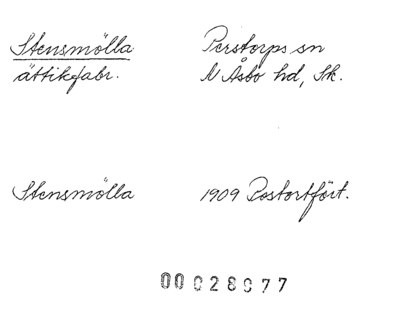 Stensmölla Perstorps sn
ättikfabr. N Åsbo hd, Sk.
Stensmölla 1909 Postortfört.
00028077